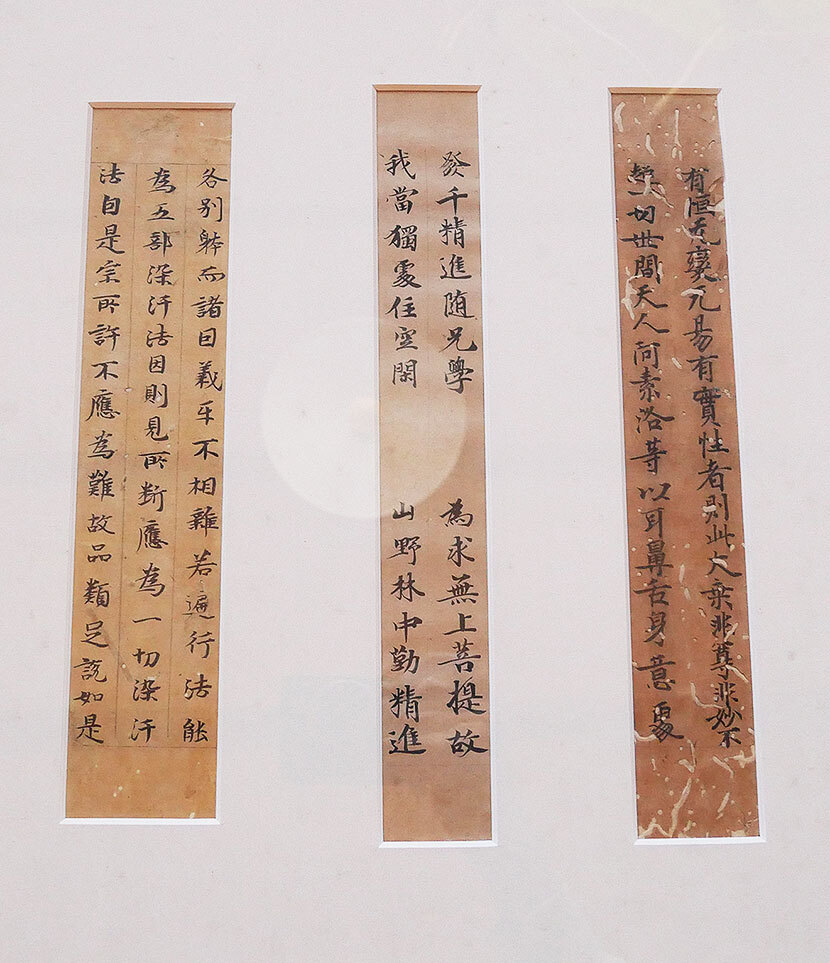 有恒无變无易有實性者則此大乘非尊非妙不
超一切世間天人阿素洛等以耳鼻舌身意處
發千精進随兄學 為求無上菩提故
我當獨處住空閑 山野林中勤精進
各別躰而諸因義互不相雜若遍行法能
為五部染汙法因則見所断應為一切染汙
法自是宗所許不應為難故品類足說如是